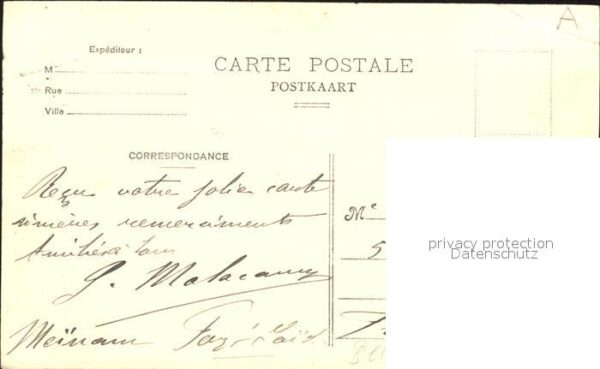 A
Expéditeur :
M
Rue
Ville
CARTE POSTALE
POSTKAART
CORRESPONDANCE
Reçu votre jolie carte
sincères remerciments
Amitiés à tous
G.
Meïnam
Mlle
5
privacy protection
Datenschutz